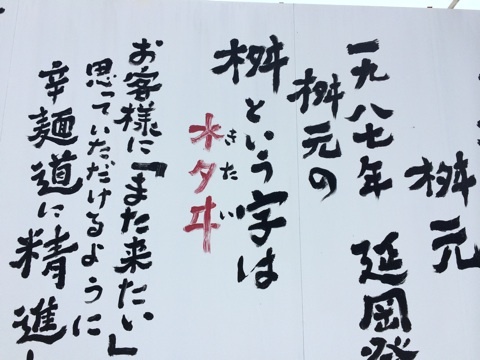 桝元
一九八七年 延岡発
桝元の
桝という字は
木タヰ
きたい
お客様に「また来たい」
思っていただけるように
辛麺道に精進